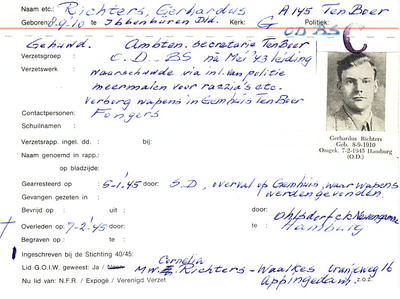 Naam etc.: Richters, Gerhardus A 145 Ten Boer
Geboren 8.9.'10 te Ibbenbüren Dld. Kerk: G Politiek:
OD BS C
Gehuwd. Ambten. secretarie Ten Boer
Verzetsgroep : O.D. - BS na Mei '43 leiding
Verzetswerk : waarschuwde via inl. van politie
meermalen voor razzia's etc.
Verborg wapens in Gemhuis Ten Boer
Contactpersonen: Fongers
Schuilnamen :
Gerhardus Richters
Geb. 8-9-1910
Omgek. 7-2-1945 Hamburg
(O.D.)
Verzetsrapp. ingel. dd. : bij:
Naam genoemd in rapp.:
op bladzijde:
Gearresteerd op : 5-1-'45 door: S.D., overval op Gemhuis, waar wapens
werden gevonden.
Gevangen gezeten in :
Bevrijd op : uit : door:
† Overleden op : 7-2-'45 te : door: Ohlsdorf ck Neuengamme
Hamburg
Begraven op : te :
Ingeschreven bij de Stichting 40/45:
Lid G.O.I.W. geweest: Ja / Neen Mw. Richters - Waalkes Oranjeweg 16
Cornelia
Nu lid van: N.F.R. / Expogé / Verenigd Verzet Appingedam